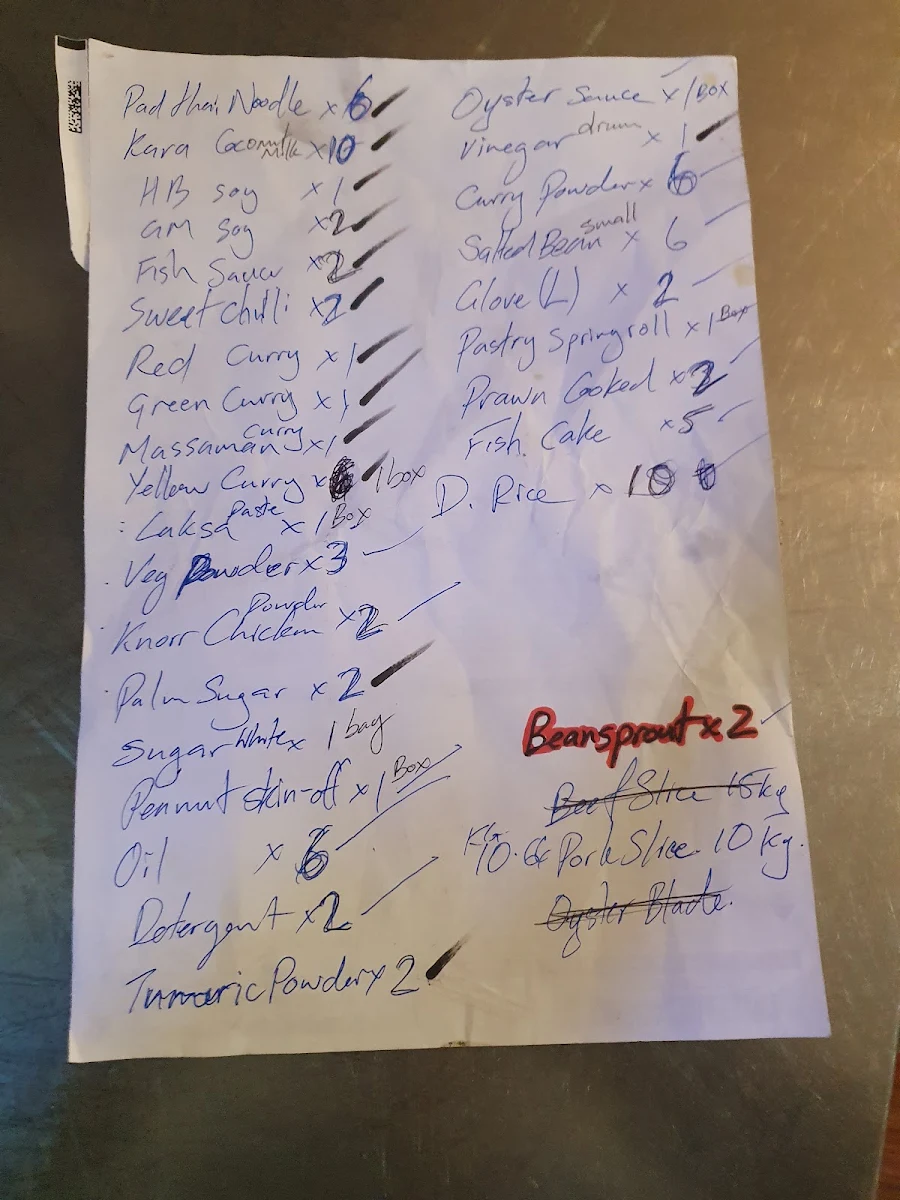 Pad thai Noodle x 6
Kara Coconut Milk x 10
HB soy x 1
GM soy x 2
Fish Sauce x 2
Sweet Chilli x 2
Red Curry x 1
Green Curry x 1
Massaman Curry x 1
Yellow Curry x 1 box
Laksa Paste x 1 Box
Veg Powder x 3
Knorr Chicken Powder x 2
Palm Sugar x 2
Sugar White x 1 bag
Pennut skin-off x 1 Box
Oil x 6
Detergent x 2
Tumuric Powder x 2
Oyster Sauce x 1 BOX
Vinegar drum x 1
Curry Powder x 6
Salted Bean small x 6
Glove (L) x 2
Pastry Springroll x 1 Box
Prawn Cooked x 2
Fish. Cake x 5
D. Rice x 10
Beansprout x 2
Beef Slice 15 kg
KG 10.64 Pork Slice. 10 kg.
Oyster Blade.